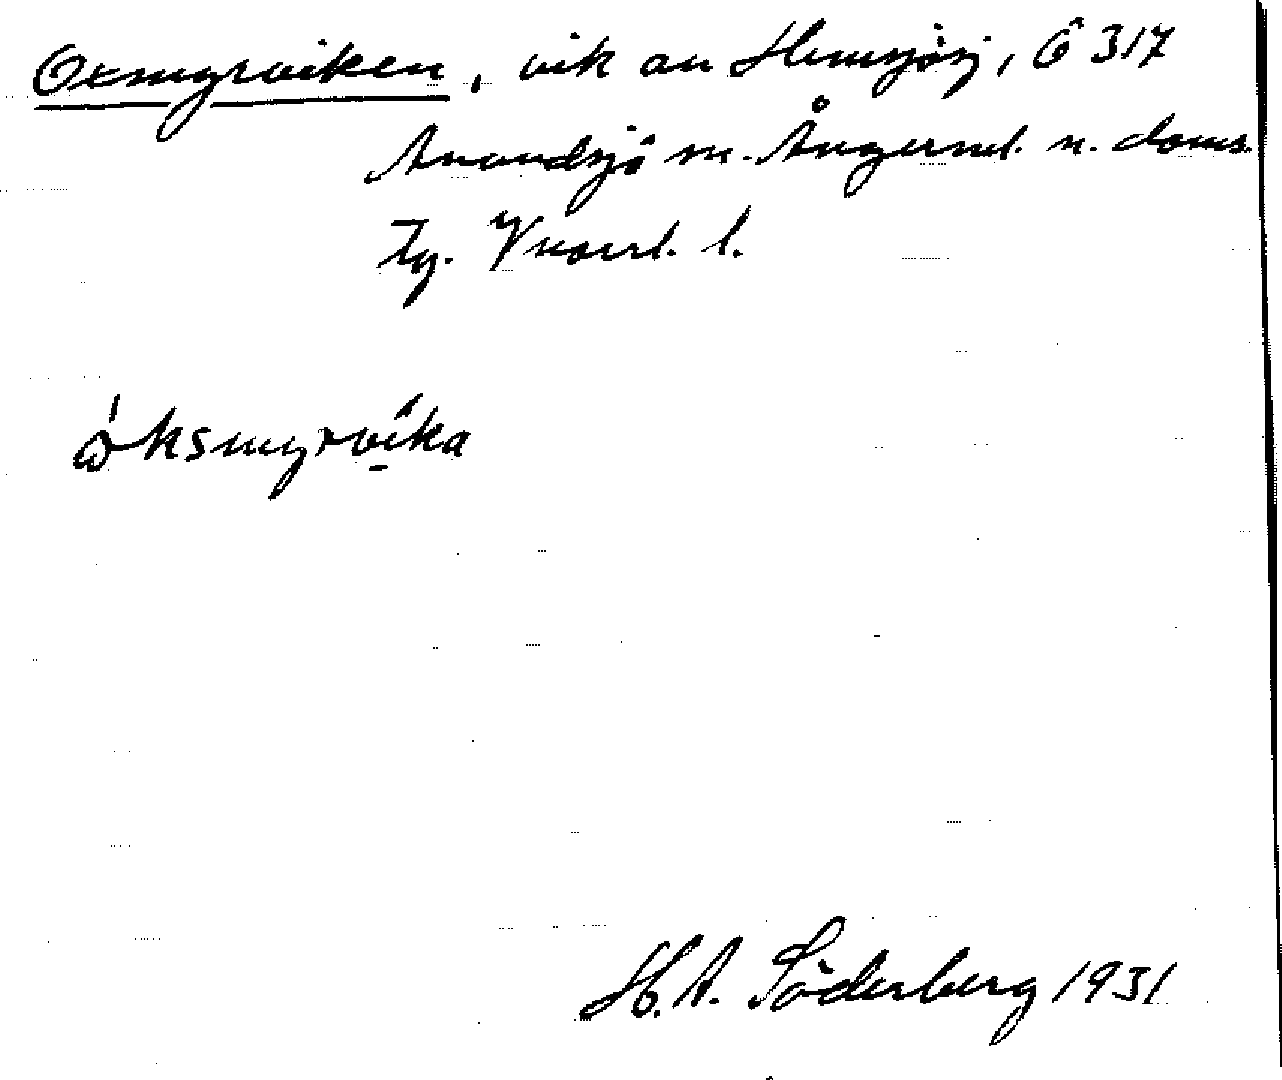 Oxmyrviken, vik av Hemsjösj, Ö 317
Anundsjö sn. Ångerml. n. doms.
Tg. Vnorrl. l.
öksmyrvika
H. A. Söderberg 1931